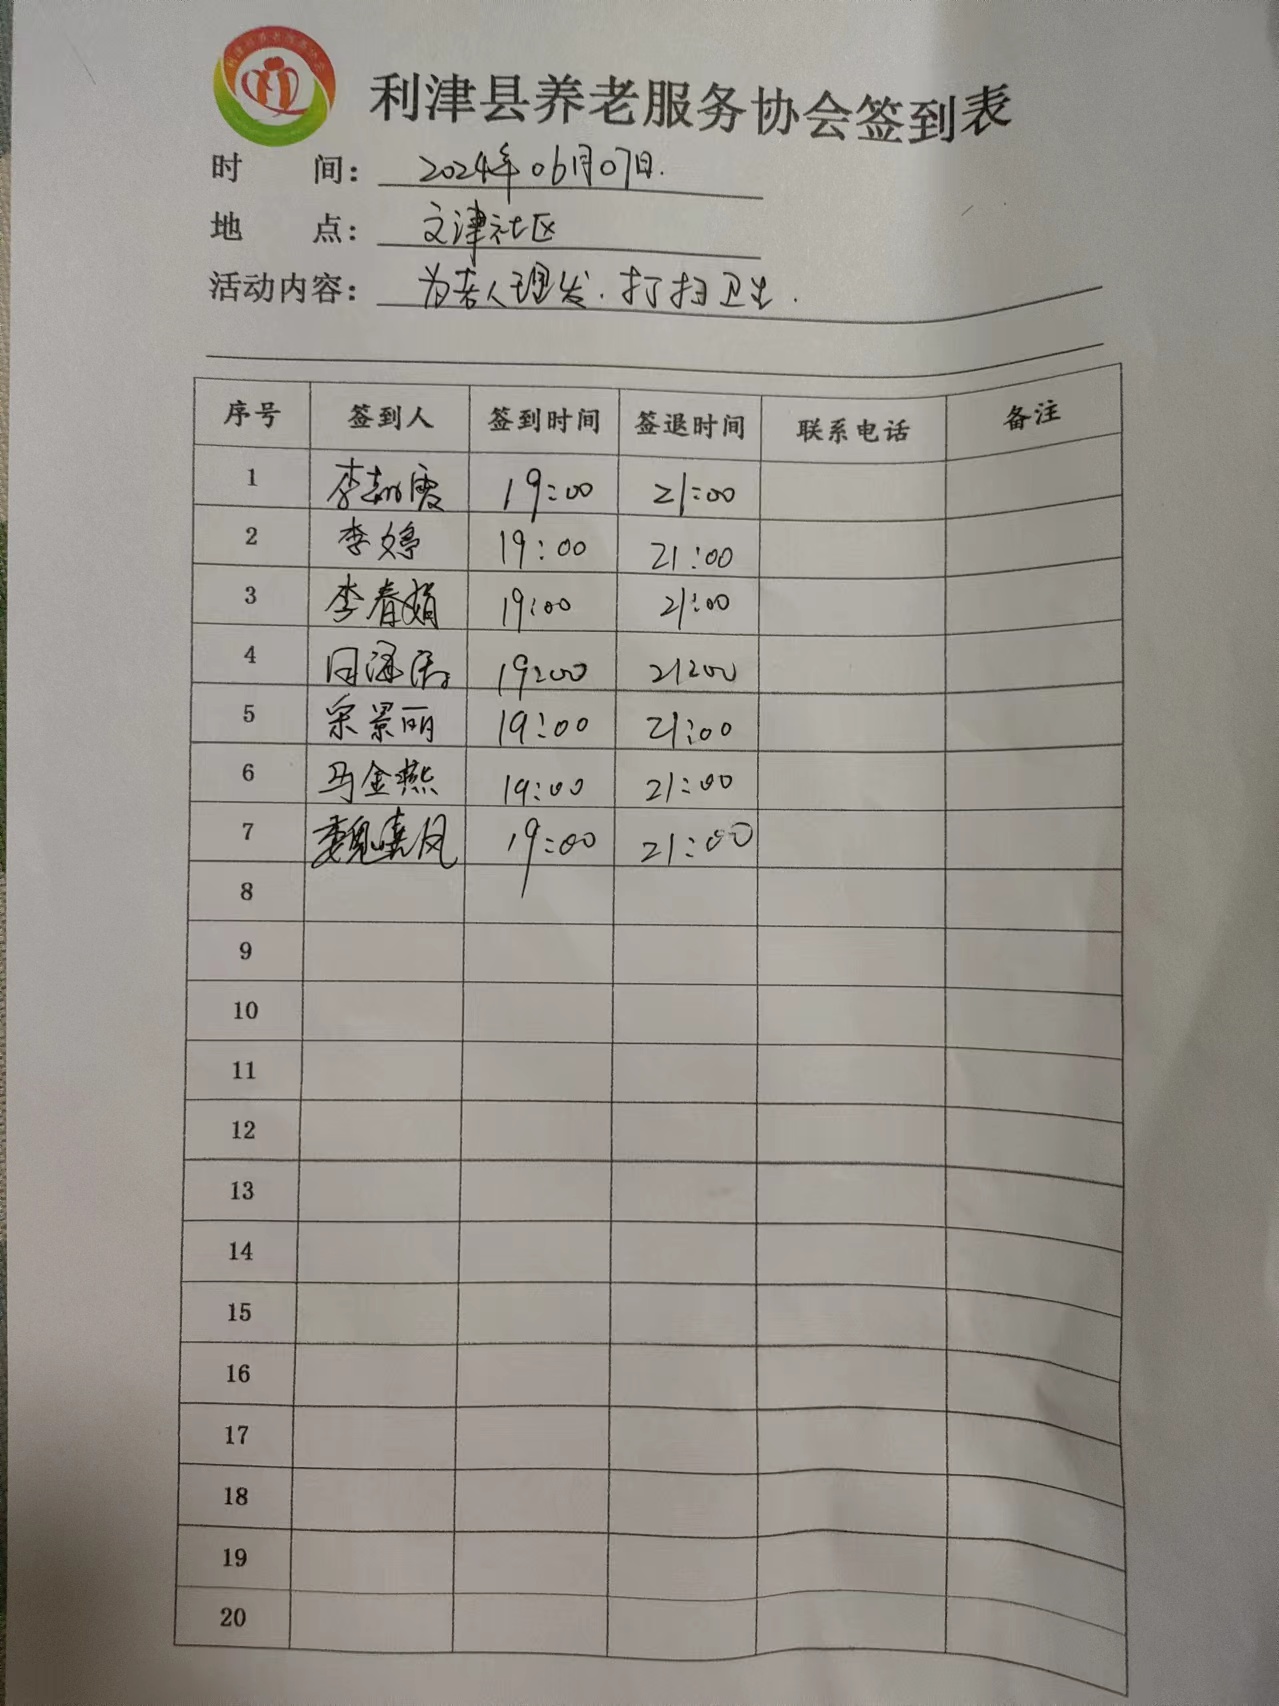 利津县养老服务协会签到表
时 间： 2024年06月07日.
地 点： 文津社区
活动内容： 为老人理发.打扫卫生.
序号 签到人 签到时间 签退时间 联系电话 备注
1 李 霞 19:00 21:00
2 李婷 19:00 21:00
3 李春娟 19:00 21:00
4 19:00 21:00
5 宋景丽 19:00 21:00
6 马金燕 19:00 21:00
7 魏晓凤 19:00 21:00
8
9
10
11
12
13
14
15
16
17
18
19
20